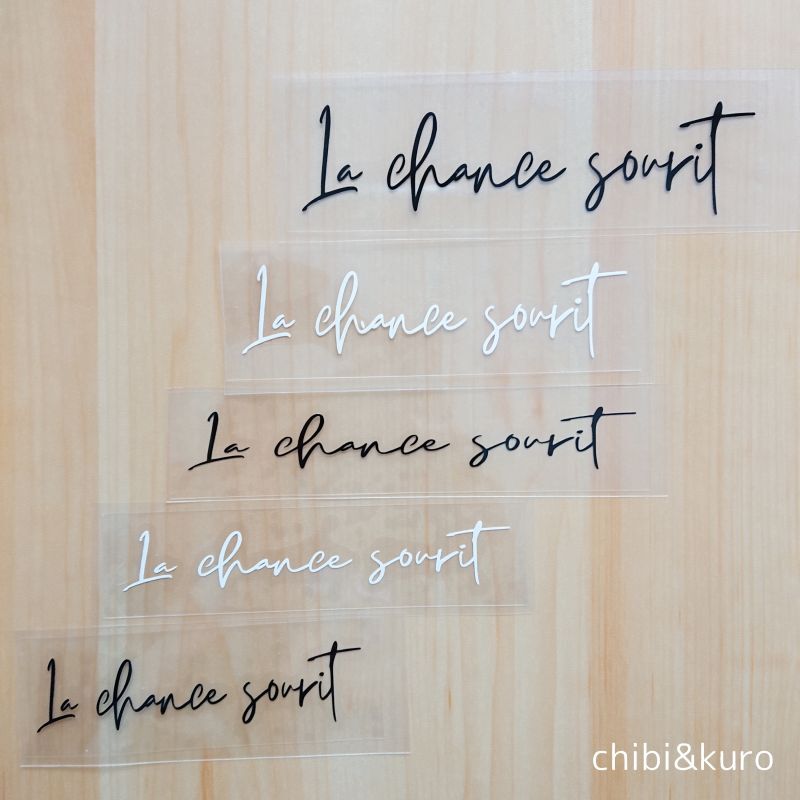 La chance sourit
La chance sourit
La chance sourit
La chance sourit
La chance sourit
chibi&kuro